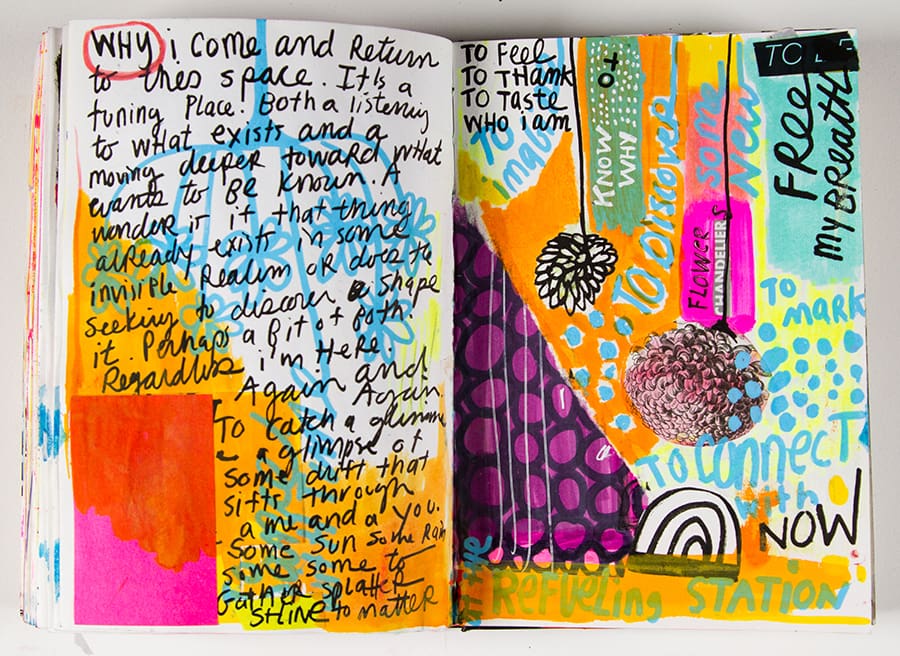 WHY i Come and Return
to thes space. It is a
tuning Place. Both a listening
to what exists and a
moving deeper toward what
wants to Be Known. A
wonder if it that thing
already exists in some
invisible Realm OR does the
seeking to discover a shape
it. Perhaps a Bit of Both.
Regardless i'm Here.
Again and Again
To catch a glimme
a glimpse of
some drift that
sifts through
a me and a you.
Some Sun Some Rain
sime some to
Gather splatter
to matter
TO Feel
TO THANK
TO Taste
WHO i am
TO
KNOW
WHY
TO DISCOVER
Some
New
TO
FREE
MY BREATH
FLOWER
CHANDELIERS
TO
MARK
TO CONNECT
with
NOW
REFUELING STATION